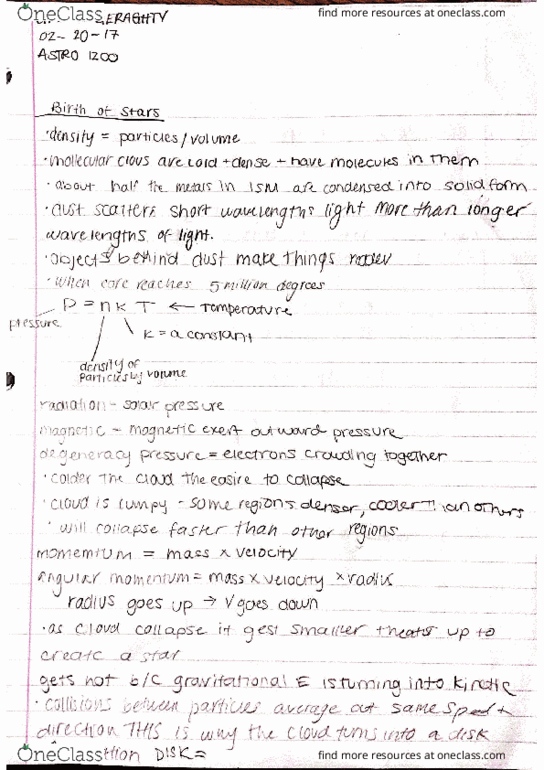 OneClass find more resources at oneclass.com
GERAGHTY
02-20-17
ASTRO 1200
Birth of Stars
·density = particles/volume
·molecular clous are cold + dense + have molecules in them
·about half the metals in ISM are condensed into solid form
·dust scatters short wavelengths light more than longer
wavelengths of light.
·objects behind dust make things redder
·when core reaches 5 million degrees
P = n k T ← Temperature
pressure
k = a constant
density of
particles by volume
radiation - solar pressure
magnetic - magnetic exert outward pressure
degeneracy pressure = electrons crowding together
·colder the cloud the easire to collapse
·cloud is lumpy - some regions denser, cooler than others
· will collapse faster than other regions
momemtum = mass x velocity
angular momentum = mass x velocity x radius
radius goes up → V goes down
·as cloud collapse it gest smaller theats up to
create a star
gets hot b/c gravitational E is turning into kinetic
·collisions between particles average out same speed +
direction THIS is why the cloud turns into a disk
OneClass DISK= find more resources at oneclass.com